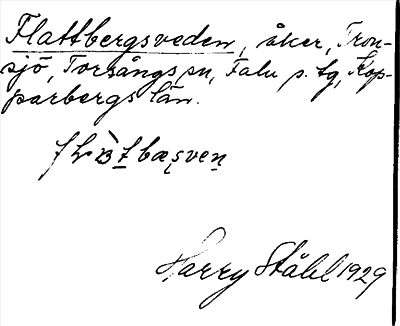 Flattbergsveden, åker, Tron-
sjö, Torsångs sn, Falu s. tg, Kop-
parbergs län.
Harry Ståhl 1929